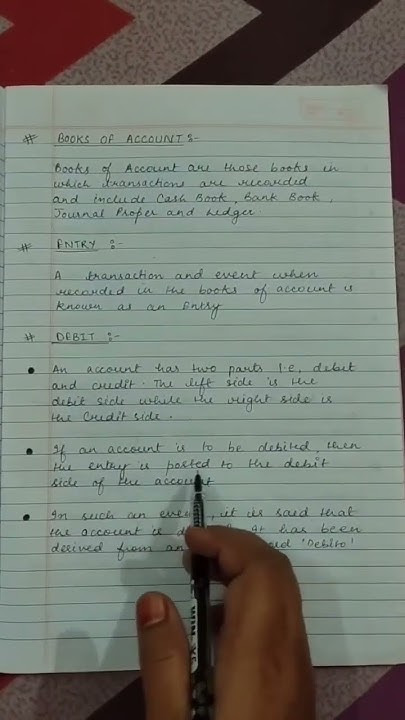 # BOOKS OF ACCOUNT :-
Books of Account are those books in
which transactions are recorded
and include Cash Book, Bank Book,
Journal Proper and Ledger
# ENTRY :-
A transaction and event when
recorded in the books of account is
known as an Entry
# DEBIT :-
• An account has two parts i.e. debit
and credit. The left side is the
debit side while the right side is
the Credit side.
• If an account is to be debited, then
the entry is posted to the debit
side of the account
• In such an event, it is said that
the account is It has been
derived from an 'Debito'